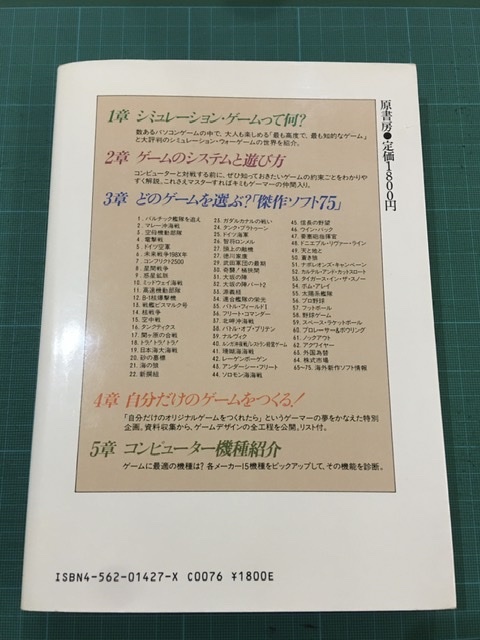 原書房●定価1800円
1章 シミュレーション・ゲームって何?
数あるパソコンゲームの中で、大人も楽しめる「最も高度で、最も知的なゲーム」
と大評判のシミュレーション・ウォーゲームの世界を紹介。
2章 ゲームのシステムと遊び方
コンピューターと対戦する前に、ぜひ知っておきたいゲームの約束ごとをわかりや
すく解説。これさえマスターすればキミもゲーマーの仲間入り。
3章 どのゲームを選ぶ?「傑作ソフト75」
1. バルチック艦隊を追え
2. マレー沖海戦
3. 空母機動部隊
4. 電撃戦
5. ドイツ空軍
6. 未来戦争198X年
7. コンフリクト2500
8. 星間戦争
9. 惑星鉱路
10. ミッドウェイ海戦
11. 高速機動部隊
12. B-1核爆撃機
13. 戦艦ビスマルク号
14. 核戦争
15. 空中戦
16. タンクティクス
17. 関ヶ原の合戦
18. トラ!トラ!トラ!
19. 日本海大海戦
20. 砂の墓標
21. 海の狼
22. 新撰組
23. ガダルカナルの戦い
24. タンク・プラトゥーン
25. ドイツ海軍
26. 智将ロンメル
27. 頭上の敵機
28. 徳川家康
29. 武田軍団の最期
30. 奇襲!桶狭間
31. 大坂の陣
32. 大坂の陣パート2
33. 源義経
34. 連合艦隊の栄光
35. バトル・フィールド1
36. フリート・コマンダー
37. 北岬沖海戦
38. バトル・オブ・ブリテン
39. ナルヴィク
40. ルンガ沖夜戦/レストラン経営ゲーム
41. 珊瑚海海戦
42. レーゲンボーゲン
43. アンダーシー・フリート
44. ソロモン海海戦
45. 信長の野望
46. ウイン・バック
47. 要塞砲指揮官
48. ドニエプル・リヴァー・ライン
49. 天と地と
50. 蒼き狼
51. ナポレオンズ・キャンペーン
52. カルテル・アンド・カットスロート
53. タイガース・イン・ザ・スノー
54. ボム・アレイ
55. 太陽系艦隊
56. プロ野球
57. フットボール
58. 野球ゲーム
59. スペース・ラケットボール
60. プロレーサー&ボウリング
61. ノックアウト
62. アクワイヤー
63. 外国為替
64. 株式市場
65〜75. 海外新作ソフト情報
4章 自分だけのゲームをつくる!
「自分だけのオリジナルゲームをつくれたら」というゲーマーの夢をかなえた特別
企画。資料収集から、ゲームデザインの全工程を公開。リスト付。
5章 コンピューター機種紹介
ゲームに最適の機種は?各メーカー15機種をピックアップして、その機能を診断。
ISBN4-562-01427-X C0076 ¥1800E